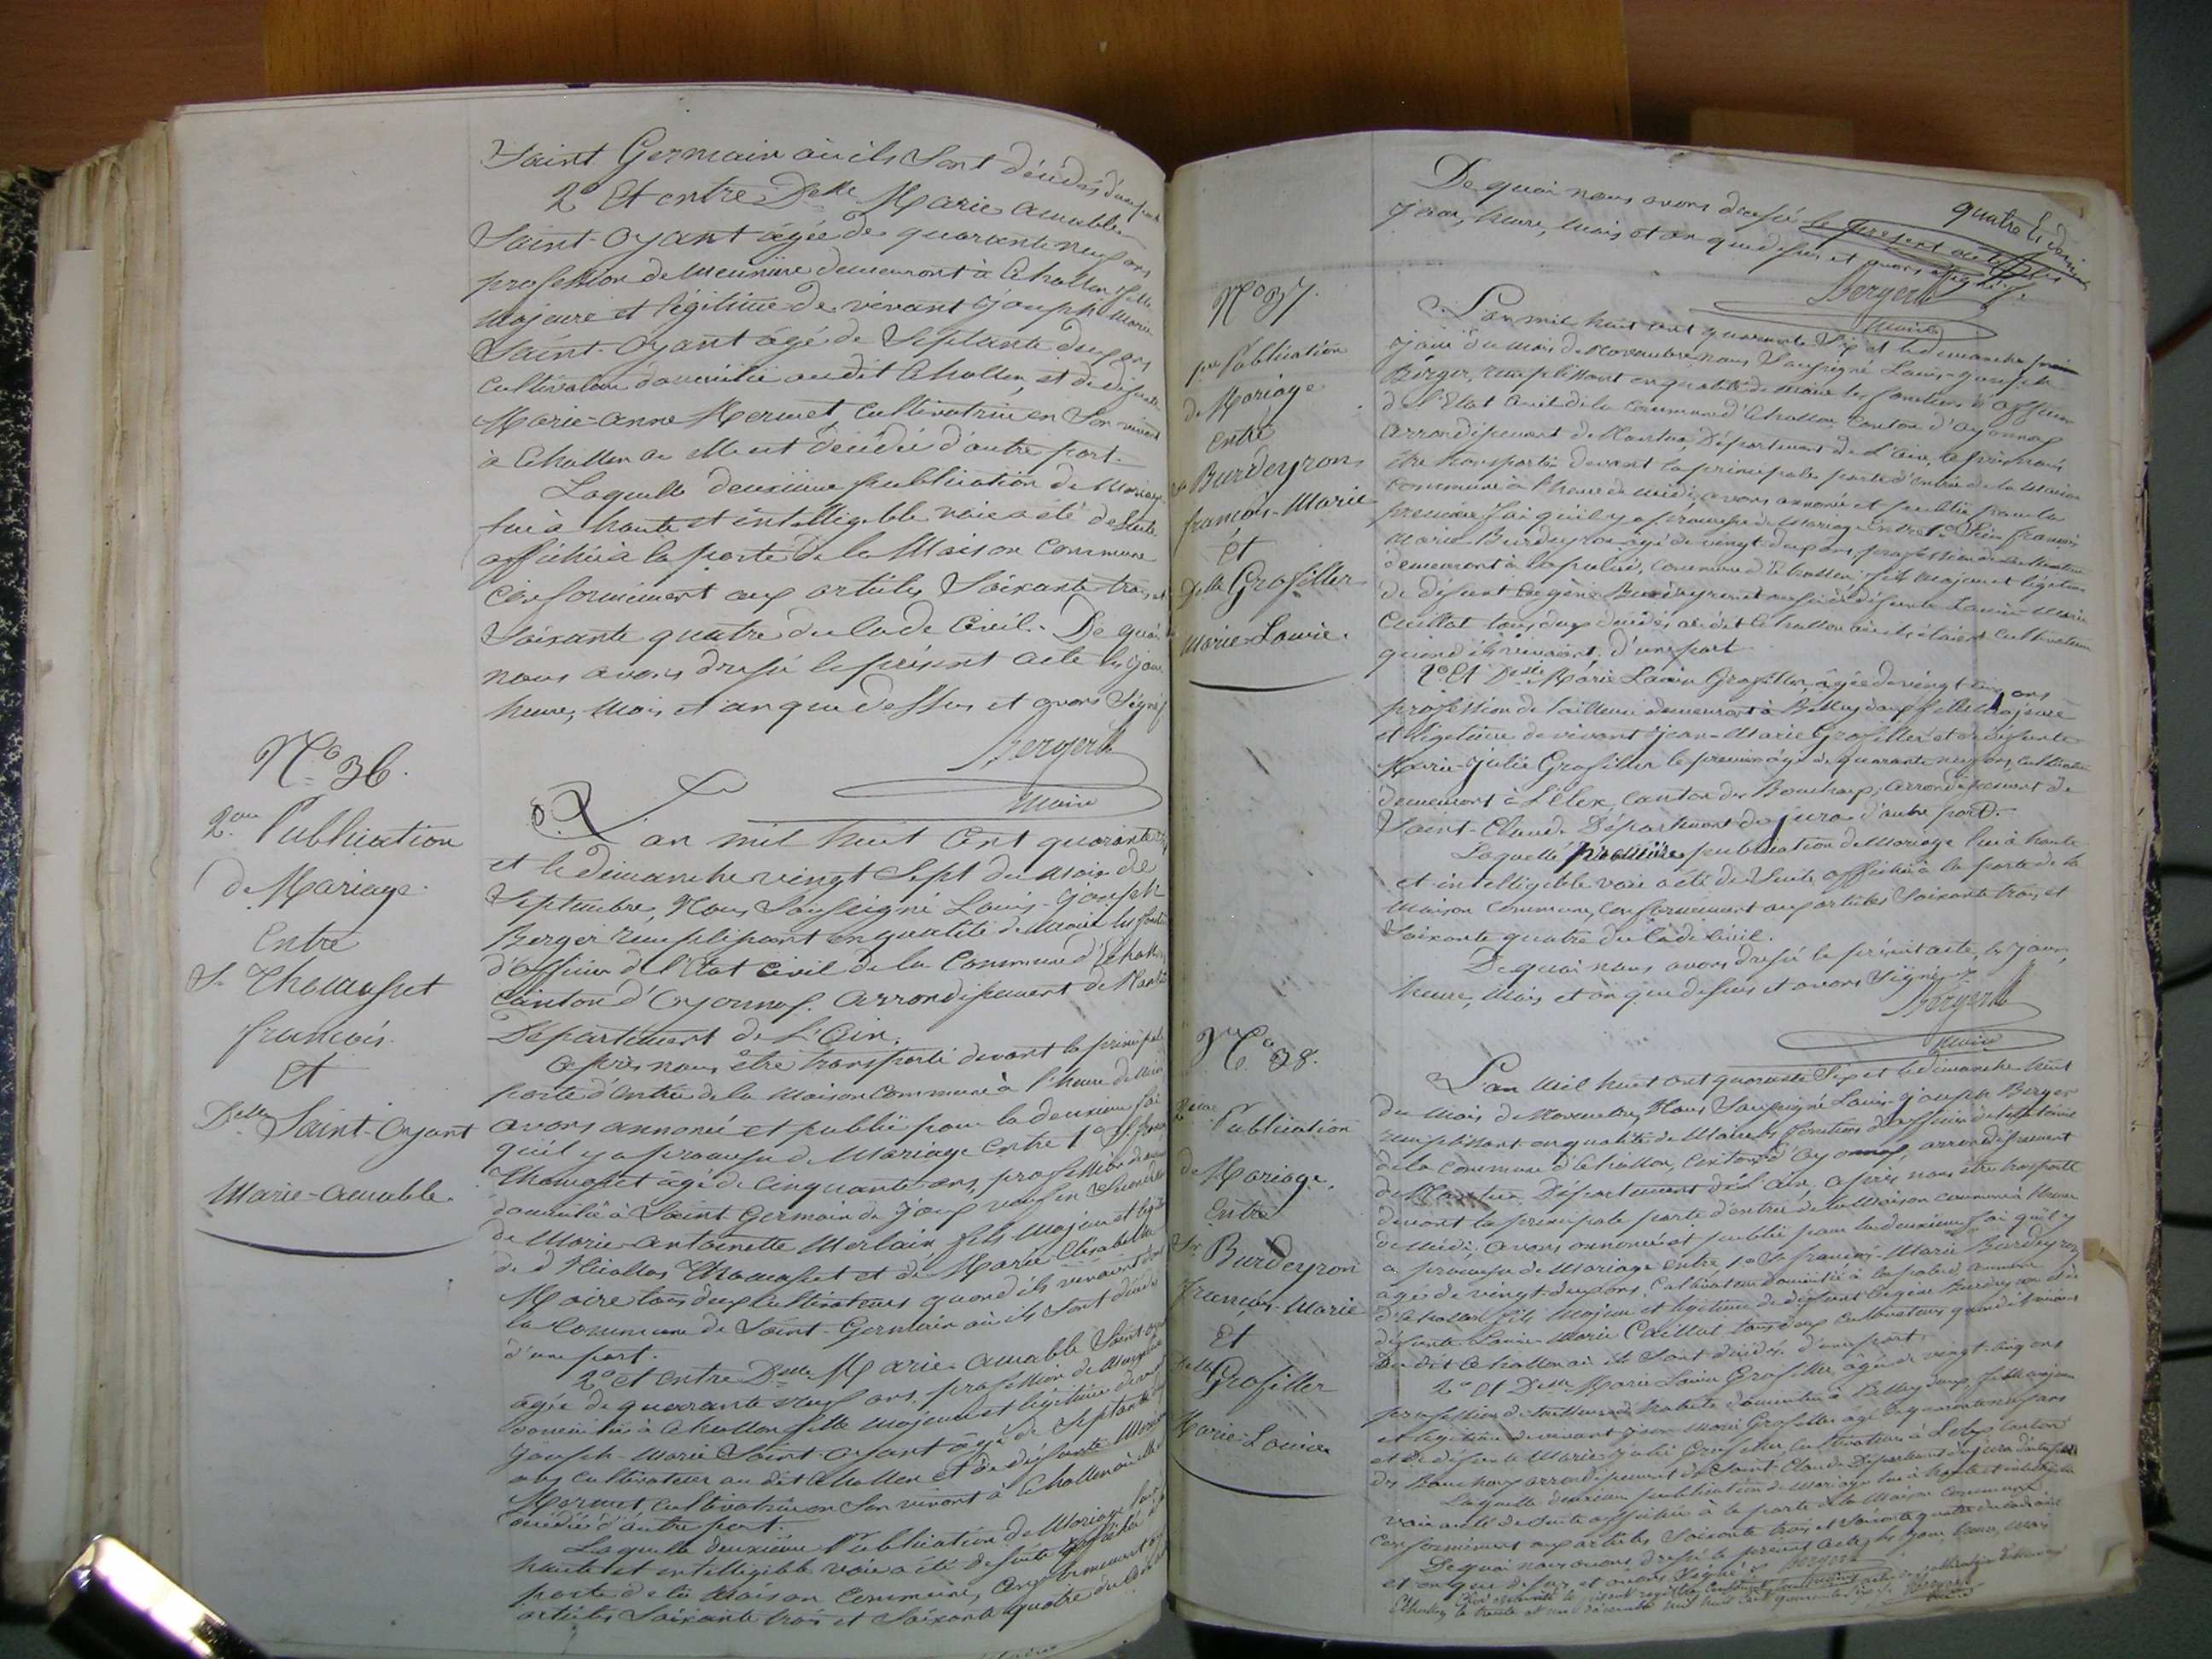 Saint Germain où ils sont décédés d'une part
2° Et entre Delle Marie amable
Saint-Oyant agée de quarante neuf ans
profession de Meunière demeurant à Echallon fille
Majeure et légitime de vivant Joseph Marie
Saint-Oyant agé de Septante deux ans
Cultivateur domicilié au dit Echallon, et de défunte
Marie-anne Mermet Cultivatrice en Son vivant
à Echallon où elle est décédée d'autre part.
Laquelle deuxième publication de Mariage
lue à haute et intelligible voix a été de Suite
affichée à la porte de la Maison Commune
Conformément aux articles Soixante trois et
Soixante quatre du Code Civil. De quoi
nous avons dressé le présent acte les jour
heure, Mois et an que dessus et avons Signé
Berger
Maire
N° 36.
2me Publication
de Mariage
Entre
Sr Thomasset
françois.
Et
Delle Saint-Oyant
Marie-amable.
L'an mil huit Cent quarante six
et le dimanche vingt Sept du Mois de
Septembre, Nous Soussigné Louis-Joseph
Berger remplissant en qualité de Maire les fonctions
d'officier de l'Etat Civil de la Commune d'Echallon
Canton d'Oyonnax. Arrondissement de Nantua
Département de L'Ain.
après nous être transporté devant la principale
porte d'entrée de la Maison Commune à l'heure de Midi
avons annoncé et publié pour la deuxième fois
qu'il y a promesse de Mariage entre 1° Sr françois
Thomasset âgé de Cinquante ans, profession de
domicilié à Saint Germain de Joux veuf en Secondes
de Marie-antoinette Merlain fils Majeur et légitime
de d Nicollas Thomasset et de Marie Elisabette
Moire tous deux Cultivateurs quand ils vivaient dans
la Commune de Saint-Germain où ils Sont décédés
d'une part.
2° et entre Delle Marie amable Saint Oyant
agée de quarante neuf ans, profession de Meunière
domiciliée à Echallon fille Majeure et légitime de vivant
Joseph-Marie Saint-Oyant âgé de Septante deux
ans Cultivateur au dit Echallon et de défunte Marie
Mermet Cultivatrice en Son vivant à Echallon où elle est
décédée d'autre part.
Laquelle deuxième Publication de Mariage lue à
haute et intelligible voix a été de Suite affichée à la
porte de la Maison Commune, Conformément aux
articles Soixante trois et Soixante quatre du Code
De quoi nous avons dressé le présent acte les
quatre Et dernier
jour, heure, Mois et an que dessus et avons Signé
Berger
Maire
N° 37.
1re Publication
de Mariage
Entre
Sr Burdeyron
françois-Marie
Et
Delle Grosfiller
Marie-Louise.
L'an mil huit cent quarante Six et le dimanche premier
jour du mois de Novembre nous Soussigné Louis-Joseph
Berger, remplissant en qualité de Maire les fonctions d'officier
de l'Etat Civil de la Commune d'Echallon Canton d'Oyonnax
Arrondissement de Nantua, Département de L'Ain, après nous
être transporté devant la principale porte d'entrée de la Maison
Commune à l'heure de midi, avons annoncé et publié pour la
première fois qu'il y a promesse de Mariage entre 1° Sieur françois
Marie Burdeyron agé de vingt deux ans profession de Cultivateur
demeurant à Commune d'Echallon, fils Majeur et légitime
de défunt Eugène Burdeyron et de défunte Louise-Marie
Caillat tous deux décédés au dit Echallon où ils étaient Cultivateurs
quand ils vivaient, d'une part
2° Et Delle Marie Louise Grosfiller, agée de vingt cinq ans
profession de Tailleuse demeurant à Belleydoux fille Majeure
et légitime de vivant Jean-Marie Grosfiller et de défunte
Marie-Julie Grosfiller le premier âgé de quarante neuf ans, Cultivateur
demeurant à L'Elex, Canton des Bouchoux, arrondissement de
Saint-Claude Département du Jura d'autre part.
Laquelle première publication de Mariage lue à haute
et intelligible voix a été de Suite affichée à la porte de la
Maison Commune, Conformément aux articles Soixante trois et
Soixante quatre du Code Civil.
De quoi nous avons dressé le présent acte, les jour,
heure, Mois et an que dessus et avons Signé
Berger
Maire
N° 38.
2me Publication
de Mariage,
Entre
Sr Burdeyron
François-Marie
Et
Delle Grosfiller
Marie-Louise
L'an Mil huit cent quarante Six et le dimanche huit
du Mois de Novembre, Nous Soussigné Louis-Joseph Berger
remplissant en qualité de Maire les fonctions d'officier de l'état Civil
de la Commune d'Echallon, Canton d'Oyonnax, arrondissement
de Nantua, Département de L'Ain, après nous être transporté
devant la principale porte d'entrée de la Maison Commune à l'heure
de Midi, avons annoncé et publié pour la deuxième fois qu'il y
a promesse de Mariage entre 1° Sr françois-Marie Burdeyron
agé de vingt deux ans, Cultivateur domicilié à Commune
d'Echallon fils Majeur et légitime de défunt Eugène Burdeyron et de
défunte Louise-Marie Caillat tous deux Cultivateurs quand ils vivaient
Du dit Echallon où ils Sont décédés d'une part.
2° Et Delle Marie Louise Grosfiller agée de vingt-cinq ans
profession de tailleuse d'habits domiciliée à Belleydoux fille Majeure
et légitime de vivant Jean Marie Grosfiller agé de quarante neuf ans
et de défunte Marie Julie Grosfiller Cultivateurs à Lelex Canton
des Bouchoux arrondissement de Saint-Claude Département du Jura d'autre part
Laquelle deuxième publication de Mariage lue à haute et intelligible
voix a été de Suite affichée à la porte de la Maison Commune
Conformément aux articles Soixante trois et Soixante quatre du Code Civil
De quoi nous avons dressé le présent acte, les jour, heure, Mois
et an que dessus et avons Signé Berger
Echallon le trente et un décembre mil huit Cent quarante six Berger